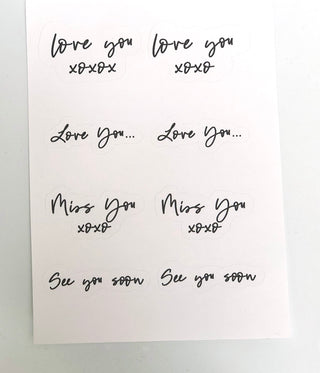 love you love you
xoxox xoxo
Love You... Love You...
Miss You Miss You
xoxo xoxo
See you soon See you soon